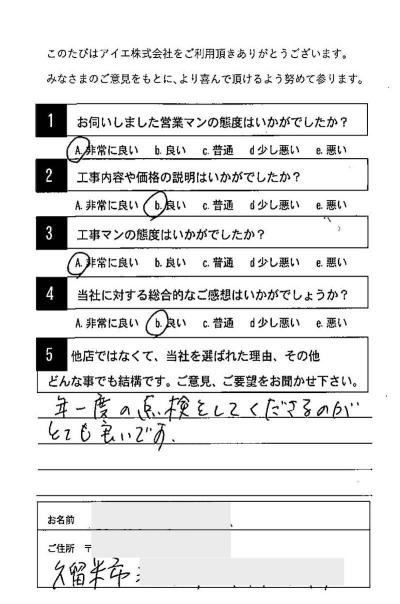 このたびはアイエ株式会社をご利用頂きありがとうございます。
みなさまのご意見をもとに、より喜んで頂けるよう努めて参ります。
1 お伺いしました営業マンの態度はいかがでしたか？
A. 非常に良い b. 良い c. 普通 d 少し悪い e. 悪い
2 工事内容や価格の説明はいかがでしたか？
A. 非常に良い b. 良い c. 普通 d 少し悪い e. 悪い
3 工事マンの態度はいかがでしたか？
A. 非常に良い b. 良い c. 普通 d 少し悪い e. 悪い
4 当社に対する総合的なご感想はいかがでしょうか？
A. 非常に良い b. 良い c. 普通 d 少し悪い e. 悪い
5 他店ではなくて、当社を選ばれた理由、その他
どんな事でも結構です。ご意見、ご要望をお聞かせ下さい。
年一度の点検をしてくださるのが
とても良いです.
お名前
ご住所 〒
久留米市